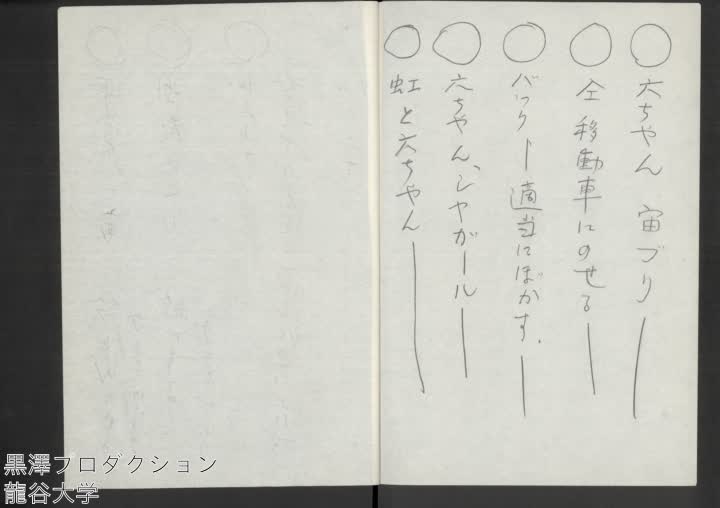 ○ 六ちゃん 宙づり
○ 全 移動車にのせる
○ バック 適当にぼかす.
○ 六ちゃん、シャガール
○ 虹と六ちゃん
黒澤プロダクション
龍谷大学